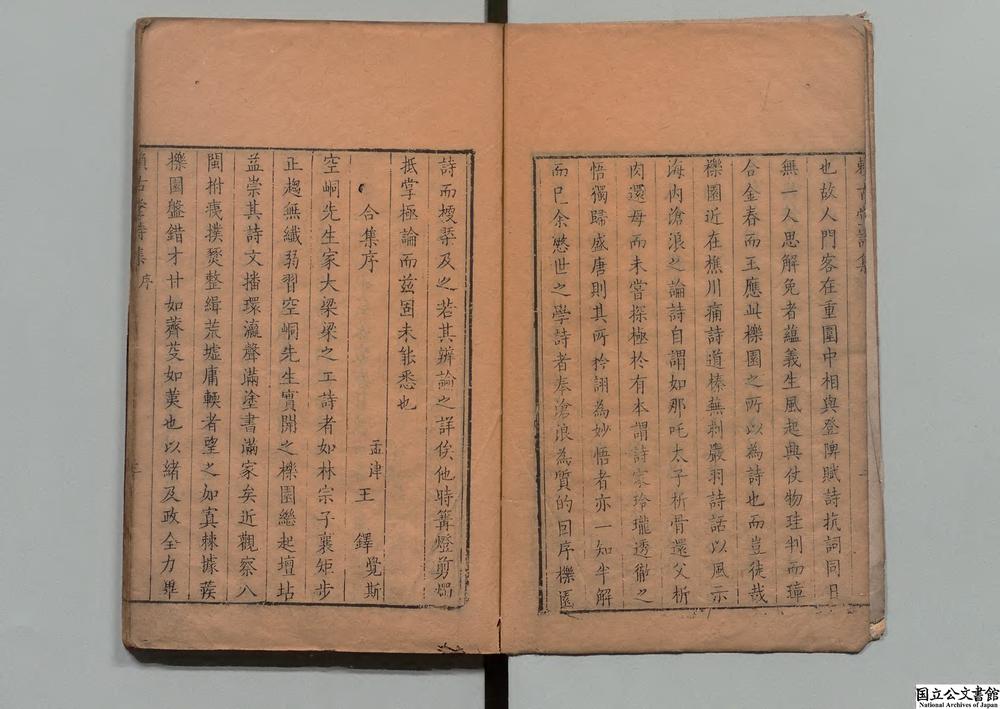 賴古堂詩集
也故人門客在重圍中相與登陴賦詩抗詞同日
無一人思解免者蘊義生風起興仗物珪判而璋
合金舂而玉應此櫟園之所以為詩也而豈徒哉
櫟園近在樵川痛詩道榛蕪刻嚴羽詩話以風示
海內滄浪之論詩自謂如那吒太子析骨還父析
肉還母而未嘗探極於有本謂詩家玲瓏透徹之
悟獨歸盛唐則其所矜詡為妙悟者亦一知半解
而已余愍世之學詩者奉滄浪為質的因序櫟園
詩而梗槩及之若其辨論之詳俟他時篝燈剪燭
抵掌極論而兹固未能悉也
合集序
孟津王鐸覺斯
空峒先生家大梁梁之工詩者如林宗子襄矩步
正趨無纖弱習空峒先生實開之櫟園繼起壇坫
益崇其詩文播環瀛聲滿塗書滿家矣近觀察八
閩拊痍撲燹整緝荒墟庸輭者望之如寘棘據蒺
櫟園盤錯才甘如薺芟如荑也以緒及政全力畢
賴古堂詩集 序